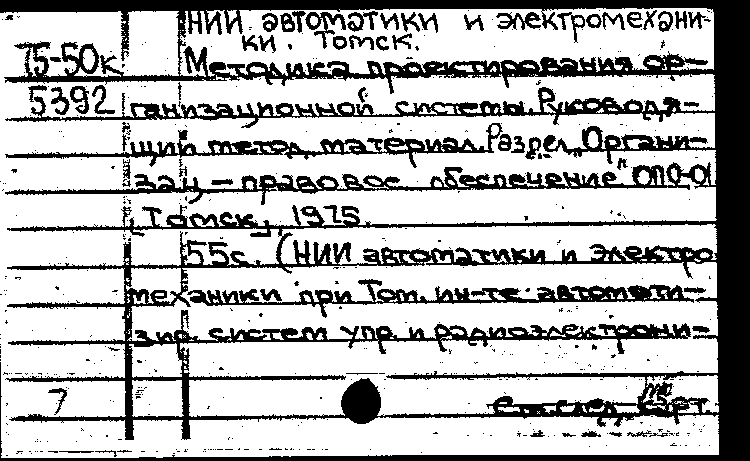 НИИ автоматики и электромехани-
ки. Томск.
75-50к Методика проектирования ор-
5392 ганизационной системы. Руководя-
щий метод. материал. Раздел „Органи-
зац-правовое обеспечение" ОПО-01
[Томск], 1975.
55с. (НИИ автоматики и электро
механики при Том. ин-те автомати-
зир. систем упр. и радиоэлектрони-
7 См. след. карт.